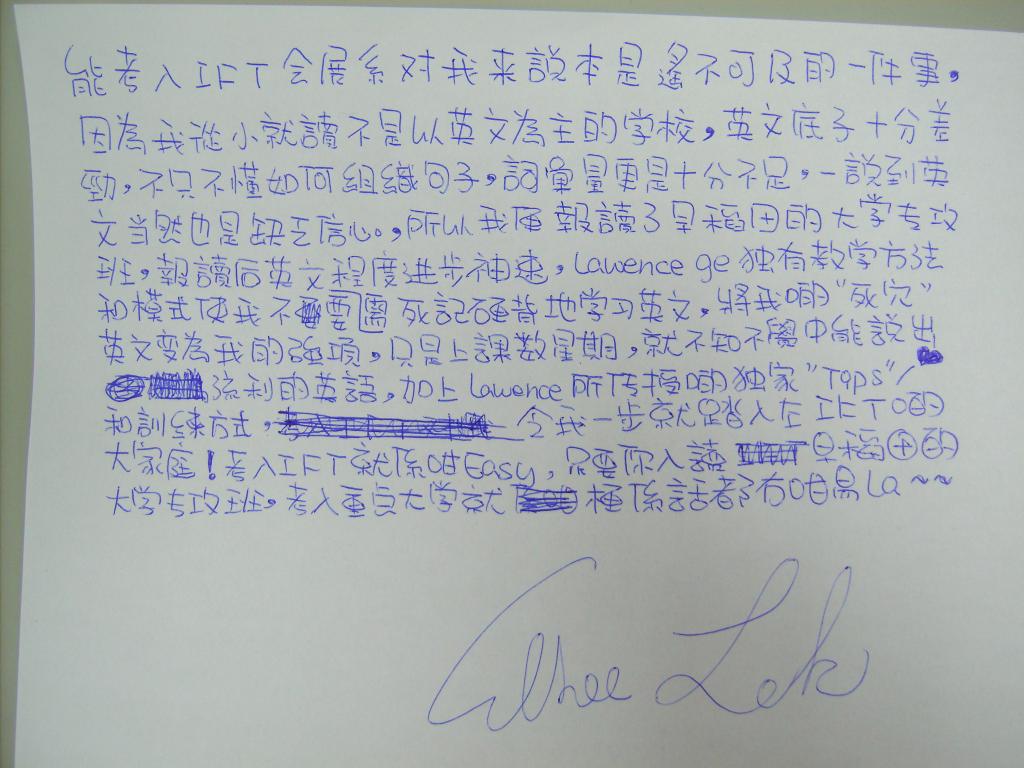 能考入IFT会展系对我来説本是遙不可及的一件事。
因為我從小就讀不是以英文為主的学校，英文底子十分差
勁，不只不懂如何組織句子，詞彙量更是十分不足，一説到英
文当然也是缺乏信心。，所以我便報讀了早稻田的大学专攻
班，報讀后英文程度進步神速，Lawence ge独有教学方法
和模式使我不需要 死記硬背地学习英文，將我啲"死穴"
英文变為我的強項，只是上課数星期，就不知不覺中能説出
流利的英語，加上Lawence所传授啲独家"Tops"/
和訓練方式， 令我一步就踏入左IFT啲
大家庭！考入IFT就係咁Easy，只要你入讀 早稻田的
大学专攻班，考入重点大学就 係話都冇咁易la~~